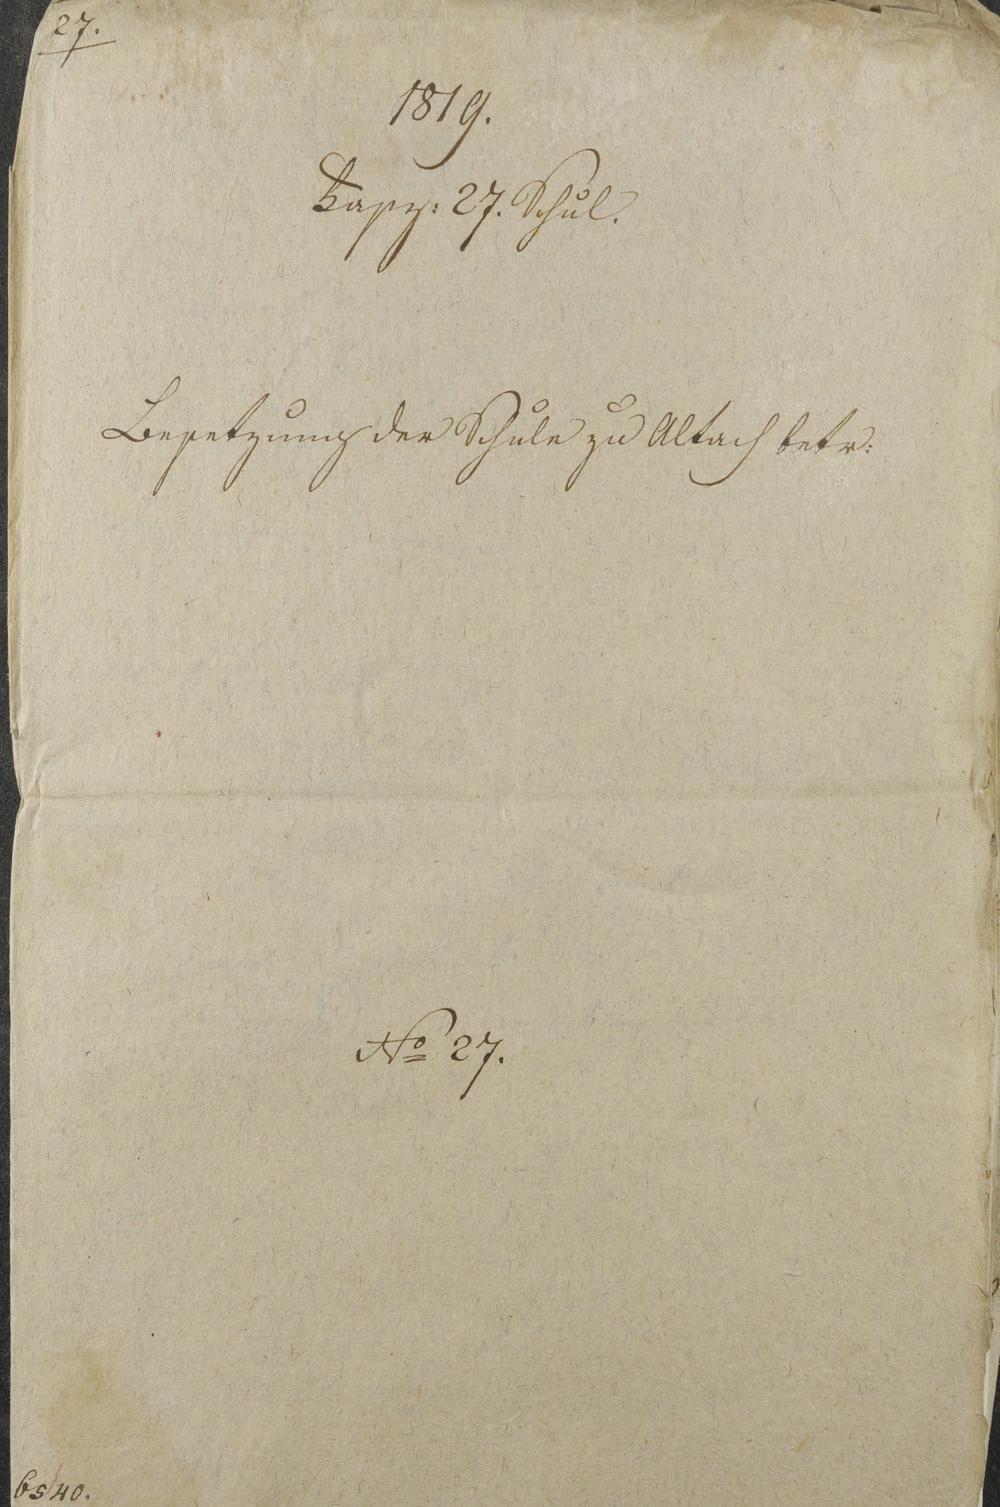 27.
1819.
Fasz: 27. Schul.
Besetzung der Schule zu Altach betr:
No 27.
bs 40.